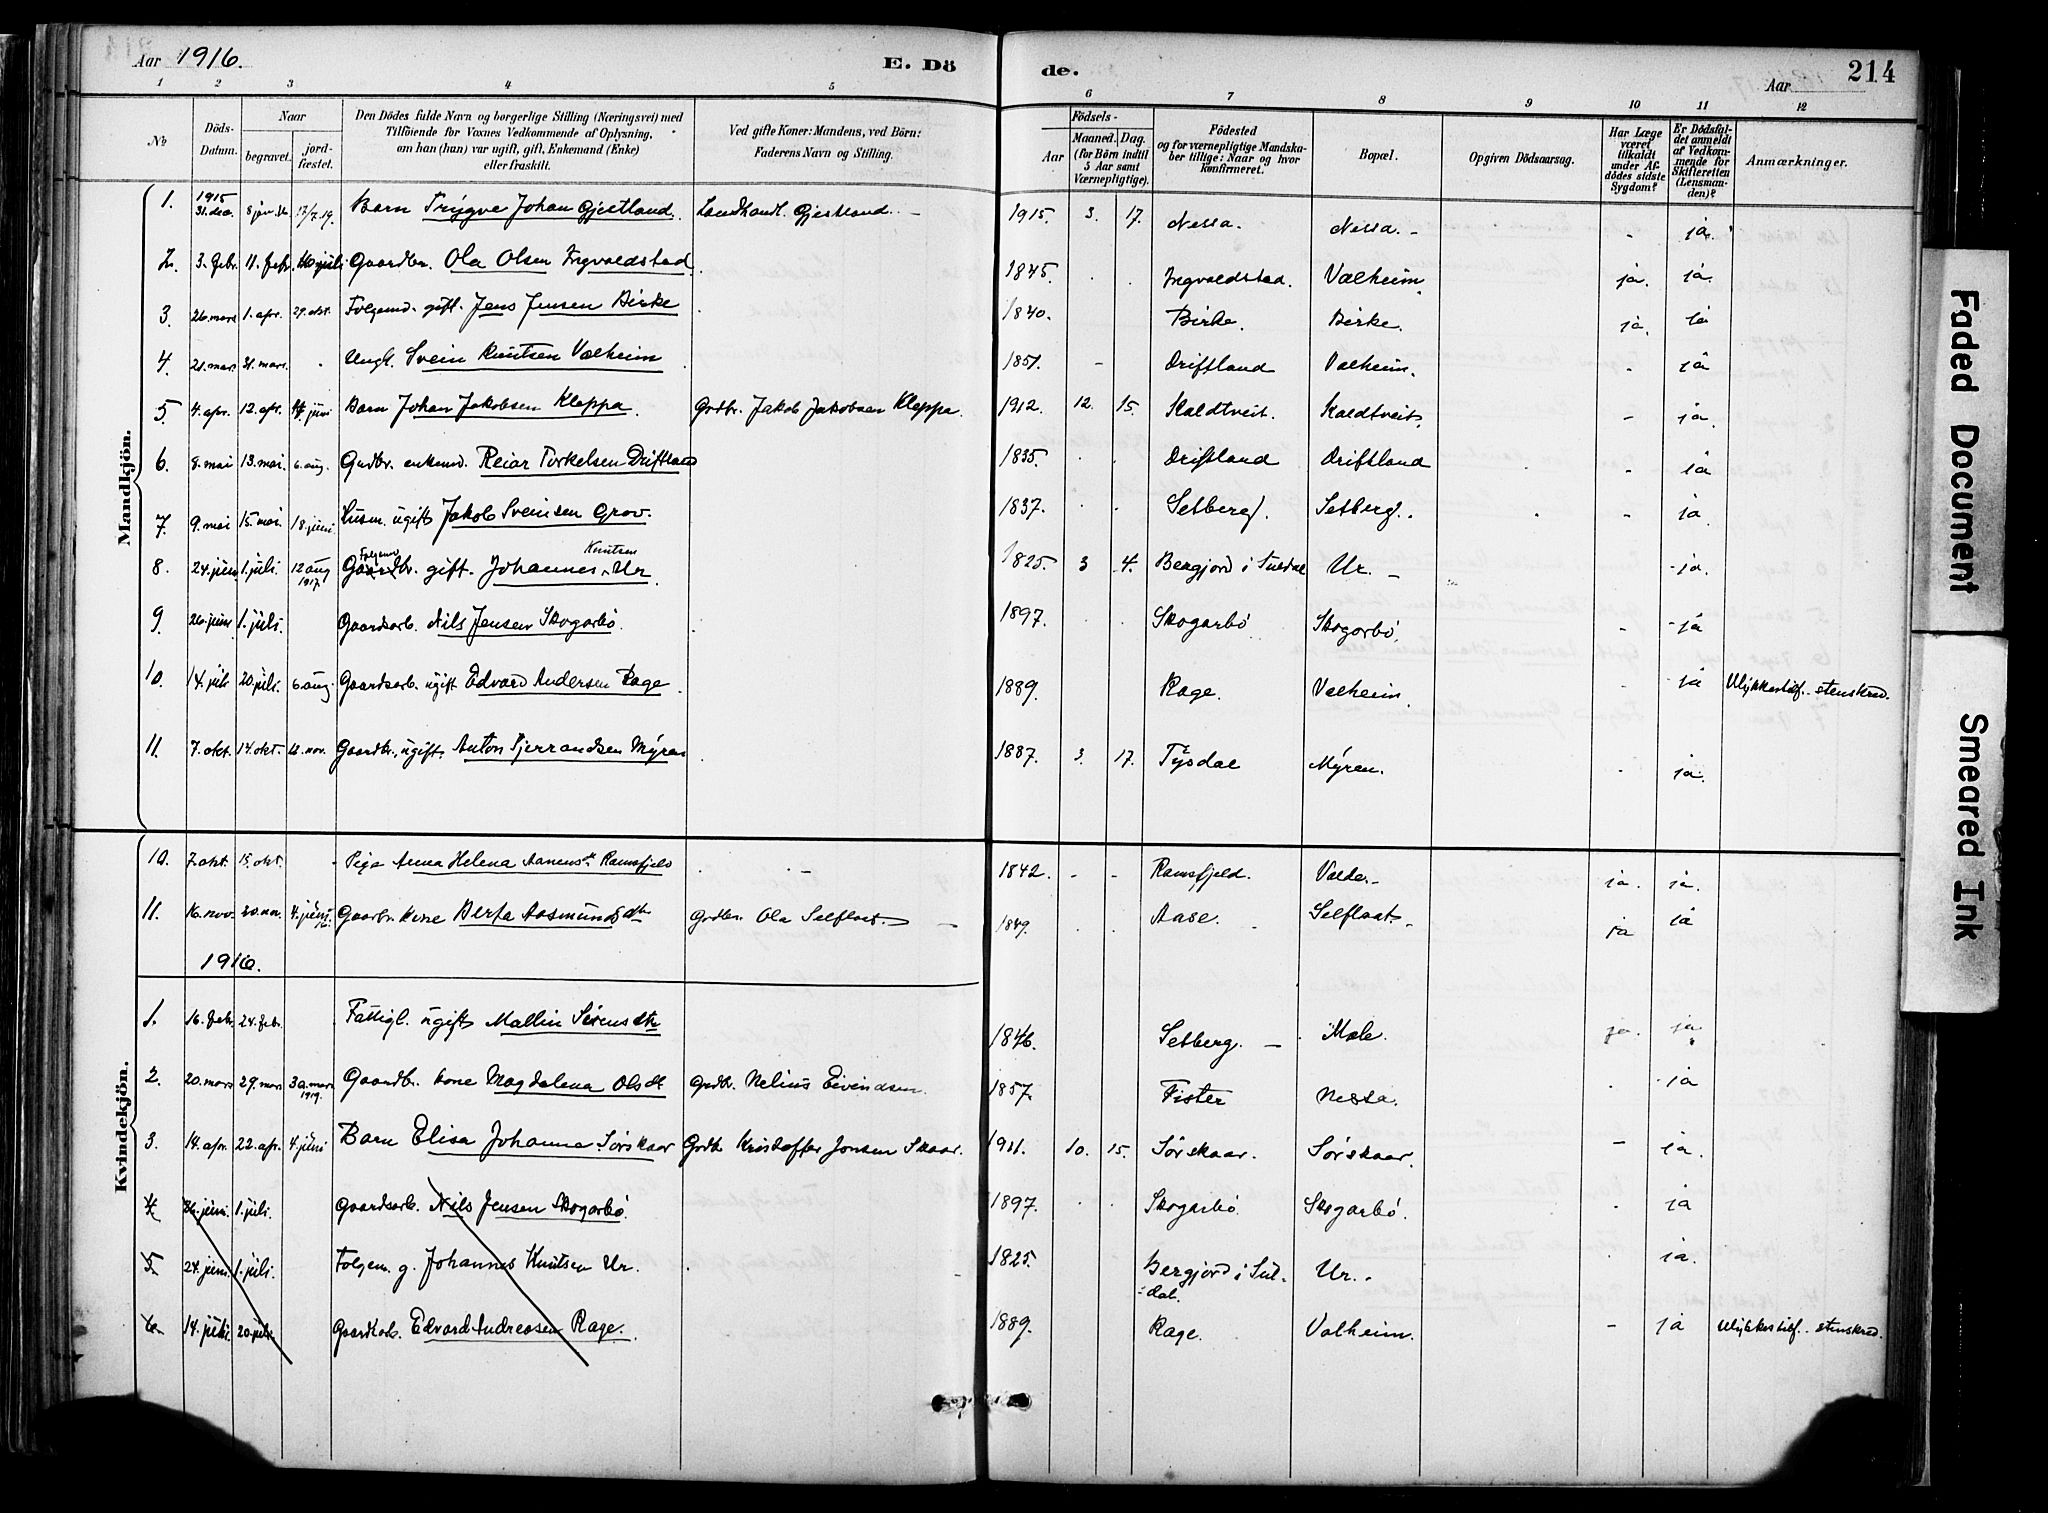 Aar 1916.
E. Dö
de.
Aar
214
1 2 3 4 5 6 7 8 9 10 11 12
No
Döds-Datum.
Naar
begravet.
jord-fæstet.
Den Dödes fulde Navn og borgerlige Stilling (Næringsvei) med
Tilföiende for Voxnes Vedkommende af Oplysning,
om han (hun) var ugift, gift, Enkemand (Enke)
eller fraskilt.
Ved gifte Koner: Mandens, ved Börn:
Faderens Navn og Stilling.
Födsels-
Aar
Maaned. Dag.
(for Börn indtil
5 Aar samt
Værnepligtige).
Födested
og for værnepligtige Mandska-
ber tillige: Naar og hvor
Konfirmeret.
Bopæl.
Opgiven Dödsaarsag.
Har Læge
været
tilkaldt
under Af-
dödes sidste
Sygdom?
Er Dödsfal-
det anmeldt
af Vedkom-
mende for
Skifteretten
(Lensman-
den)?
Anmærkninger.
Mandkjön.
1. 1915 31. dec. 8 jan. 17/7. 19. Barn Trygve Johan Gjestland. Landhandl. Gjestland. - 1915. 3. 17. Nessa. Nessa. - - ja.
2. 3. febr. 11. febr. 16 juli Gaardbr. Ola Olsen Ingvaldstad 1845. Ingvaldstad. Valheim ja. ja.
3. 26. mars 1. apr. 29. okt. Folgemd. gift. Jens Jensen Birke 1840. Birke. Birke. ja. ja
4. 21. mars. 31. mars. Ungk. Svein Knutsen Valheim 1851. - Driftland Valheim. - ja
5. 4. apr. 12. apr. 14 juni Barn Johan Jakobsen Kleppa. Grdbr. Jakob Jakobsen Kleppa. 1912. 12. 15. Kaldtveit. Kaldtveit. - ja.
6. 8. mai 13. mai. 6. aug. Grdbr. enkemd. Reiar Torkelsen Driftland 1835. Driftland Driftland - ja
7. 9. mai 15. mai. 18. juni Husm. ugift Jakob Sveinsen Grov. 1837. Setberg. Setberg. - ja.
8. 24. juni 1. juli. 12 aug 1917. Gaardbr. Folgemd gift. Johannes Knutsen Ur. 1825. 3 4. Bergjord i Suldal Ur. - ja.
9. 26. juni 1. juli. Gaardsarb. Nils Jensen Skogarbø. 1897. Skogarbø Skogarbø. - ja
10. 14. juli 20. juli. 6. aug. Gaardsarb. ugift Edvard Andersen Rage. 1889. Rage. Valheim. - ja Ulykkestilf. stenskred.
11. 7. okt. 14. okt. 12. nov. Gaardbr. ugift. Anton Tjerrandsen Myren 1887. 3. 17. Tysdal Myren. - ja.
Kvindekjön.
10. 7. okt. 15. okt. Pige Anna Helena Aanensdt. Ramsfjeld - 1842. - - Ramsfjeld. Valde. - ja. ja.
11. 16. nov. 20. nov. 4. juni 16. Gaardbr. kone Berta Aasmundsdtr Grdbr. Ola Selflaat. - 1849. Aase. Selflaat. ja ja
1916.
1. 16. febr. 24. feb. Fattigl. ugift Mallin Sørensdtr 1846. Setberg. - Mæle. ja. ja
2. 20. mars 29. mars 30. mars 1919. Gaardbr. kone Magdalena Olsdt Grdbr. Nelius Eivindsen. 1857. Fister Nessa. - ja
3. 14. apr. 22. apr. 4. juni Barn Elisa Johanna Sørskaar Grdb. Kristoffer Jonsen Skaar. 1911. 10. 15. Sørskaar. Sørskaar. - ja.
4 26. juni. 1. juli. Gaardsarb. Nils Jensen Skogarbø. 1897. Skogarbø Skogarbø. ja
5. 24. juni. 1. juli. Folgem. g. Johannes Knutsen Ur. 1825. Bergjord i Sul-dal. Ur. - ja.
6. 14. juli 20. juli. Gaardsarb. Edvard Andreassen Rage. 1889. Rage. Valheim. - ja Ulykkestilf. stenskred.
Faded Document
Smeared Ink